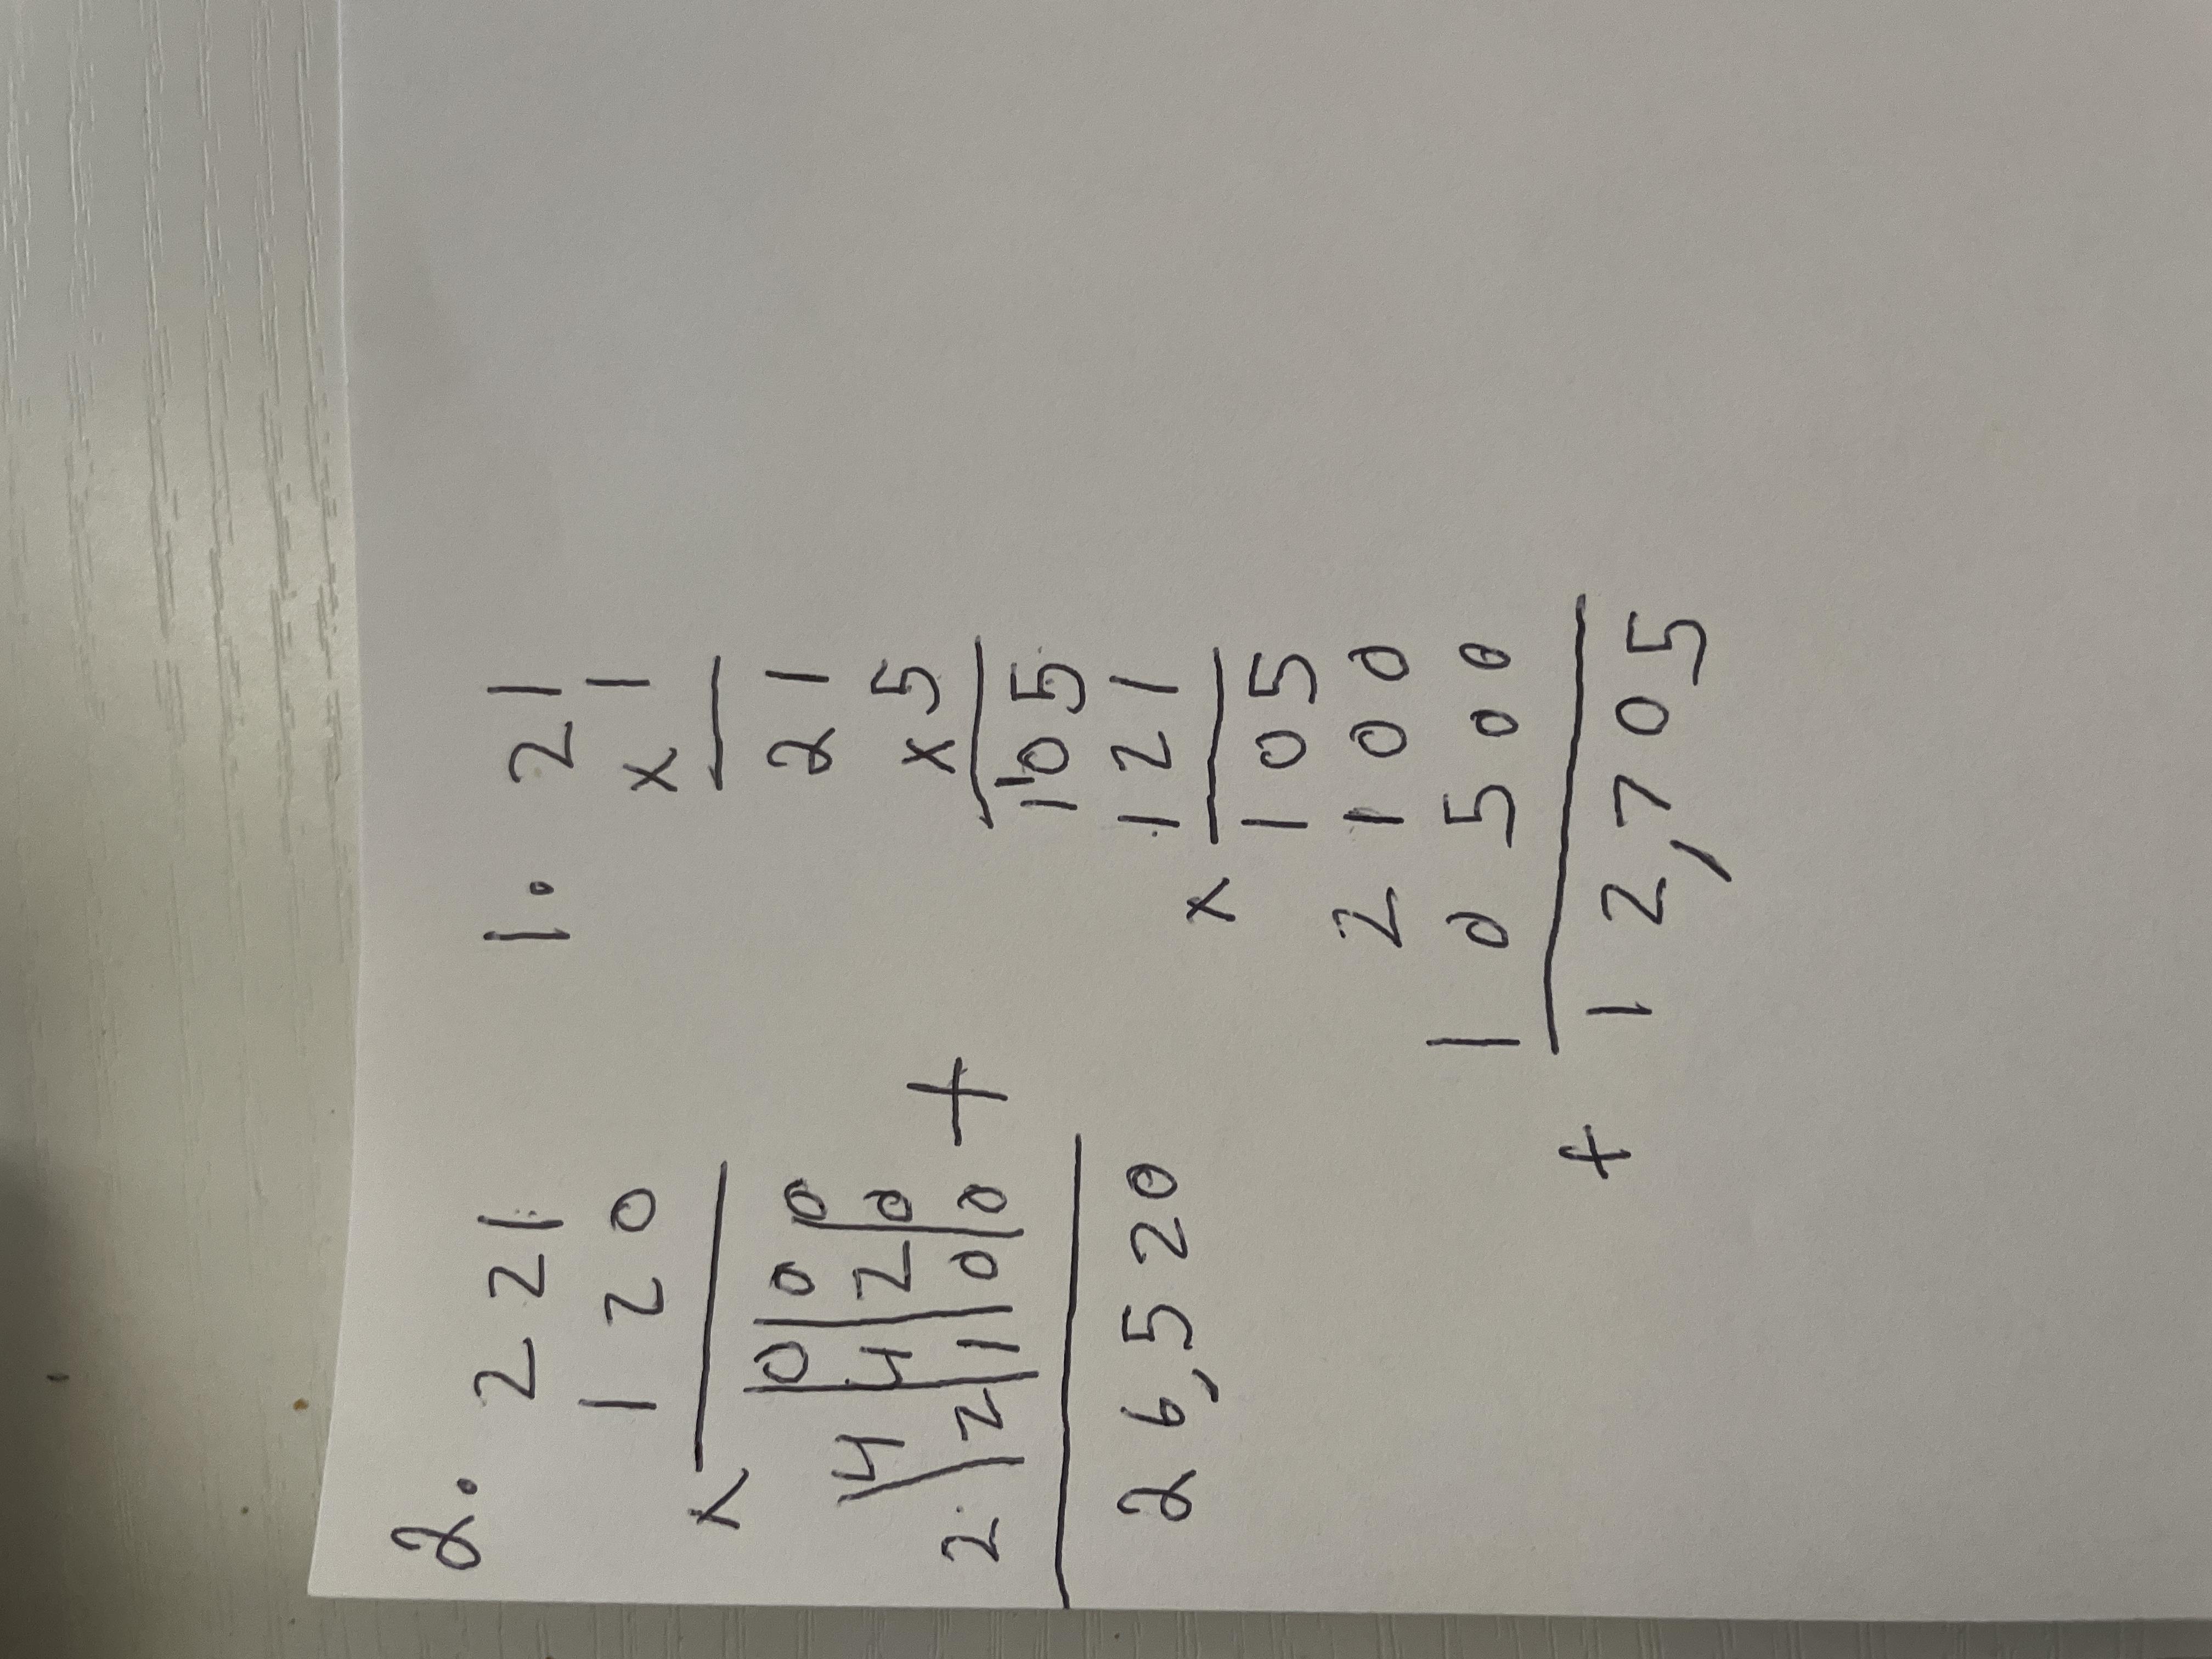 2.
221
120
x
000
4420
22100
+
26,520
1. 21
x 1
21
x5
105
121
x
105
2100
10500
+
12,705